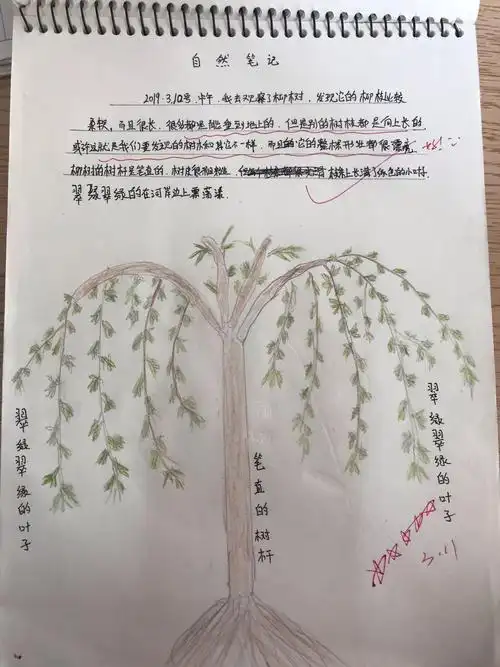 自然笔记
2019.3.10号,中午,我去观察了柳树,发现它的柳枝比较
柔软,而且很长,很多都是能垂到地上的,但是别的树枝都是向上长的
或许这就是我们要发现的树木和其它不一样,而且的它的整棵形状都很漂亮
柳树的树杆是笔直的,树皮很粗糙,上长满了绿色的小叶
翠翠绿绿的在河岸边上飘荡漾
翠绿翠绿的叶子
笔直的树杆
翠绿翠绿的叶子
3.11